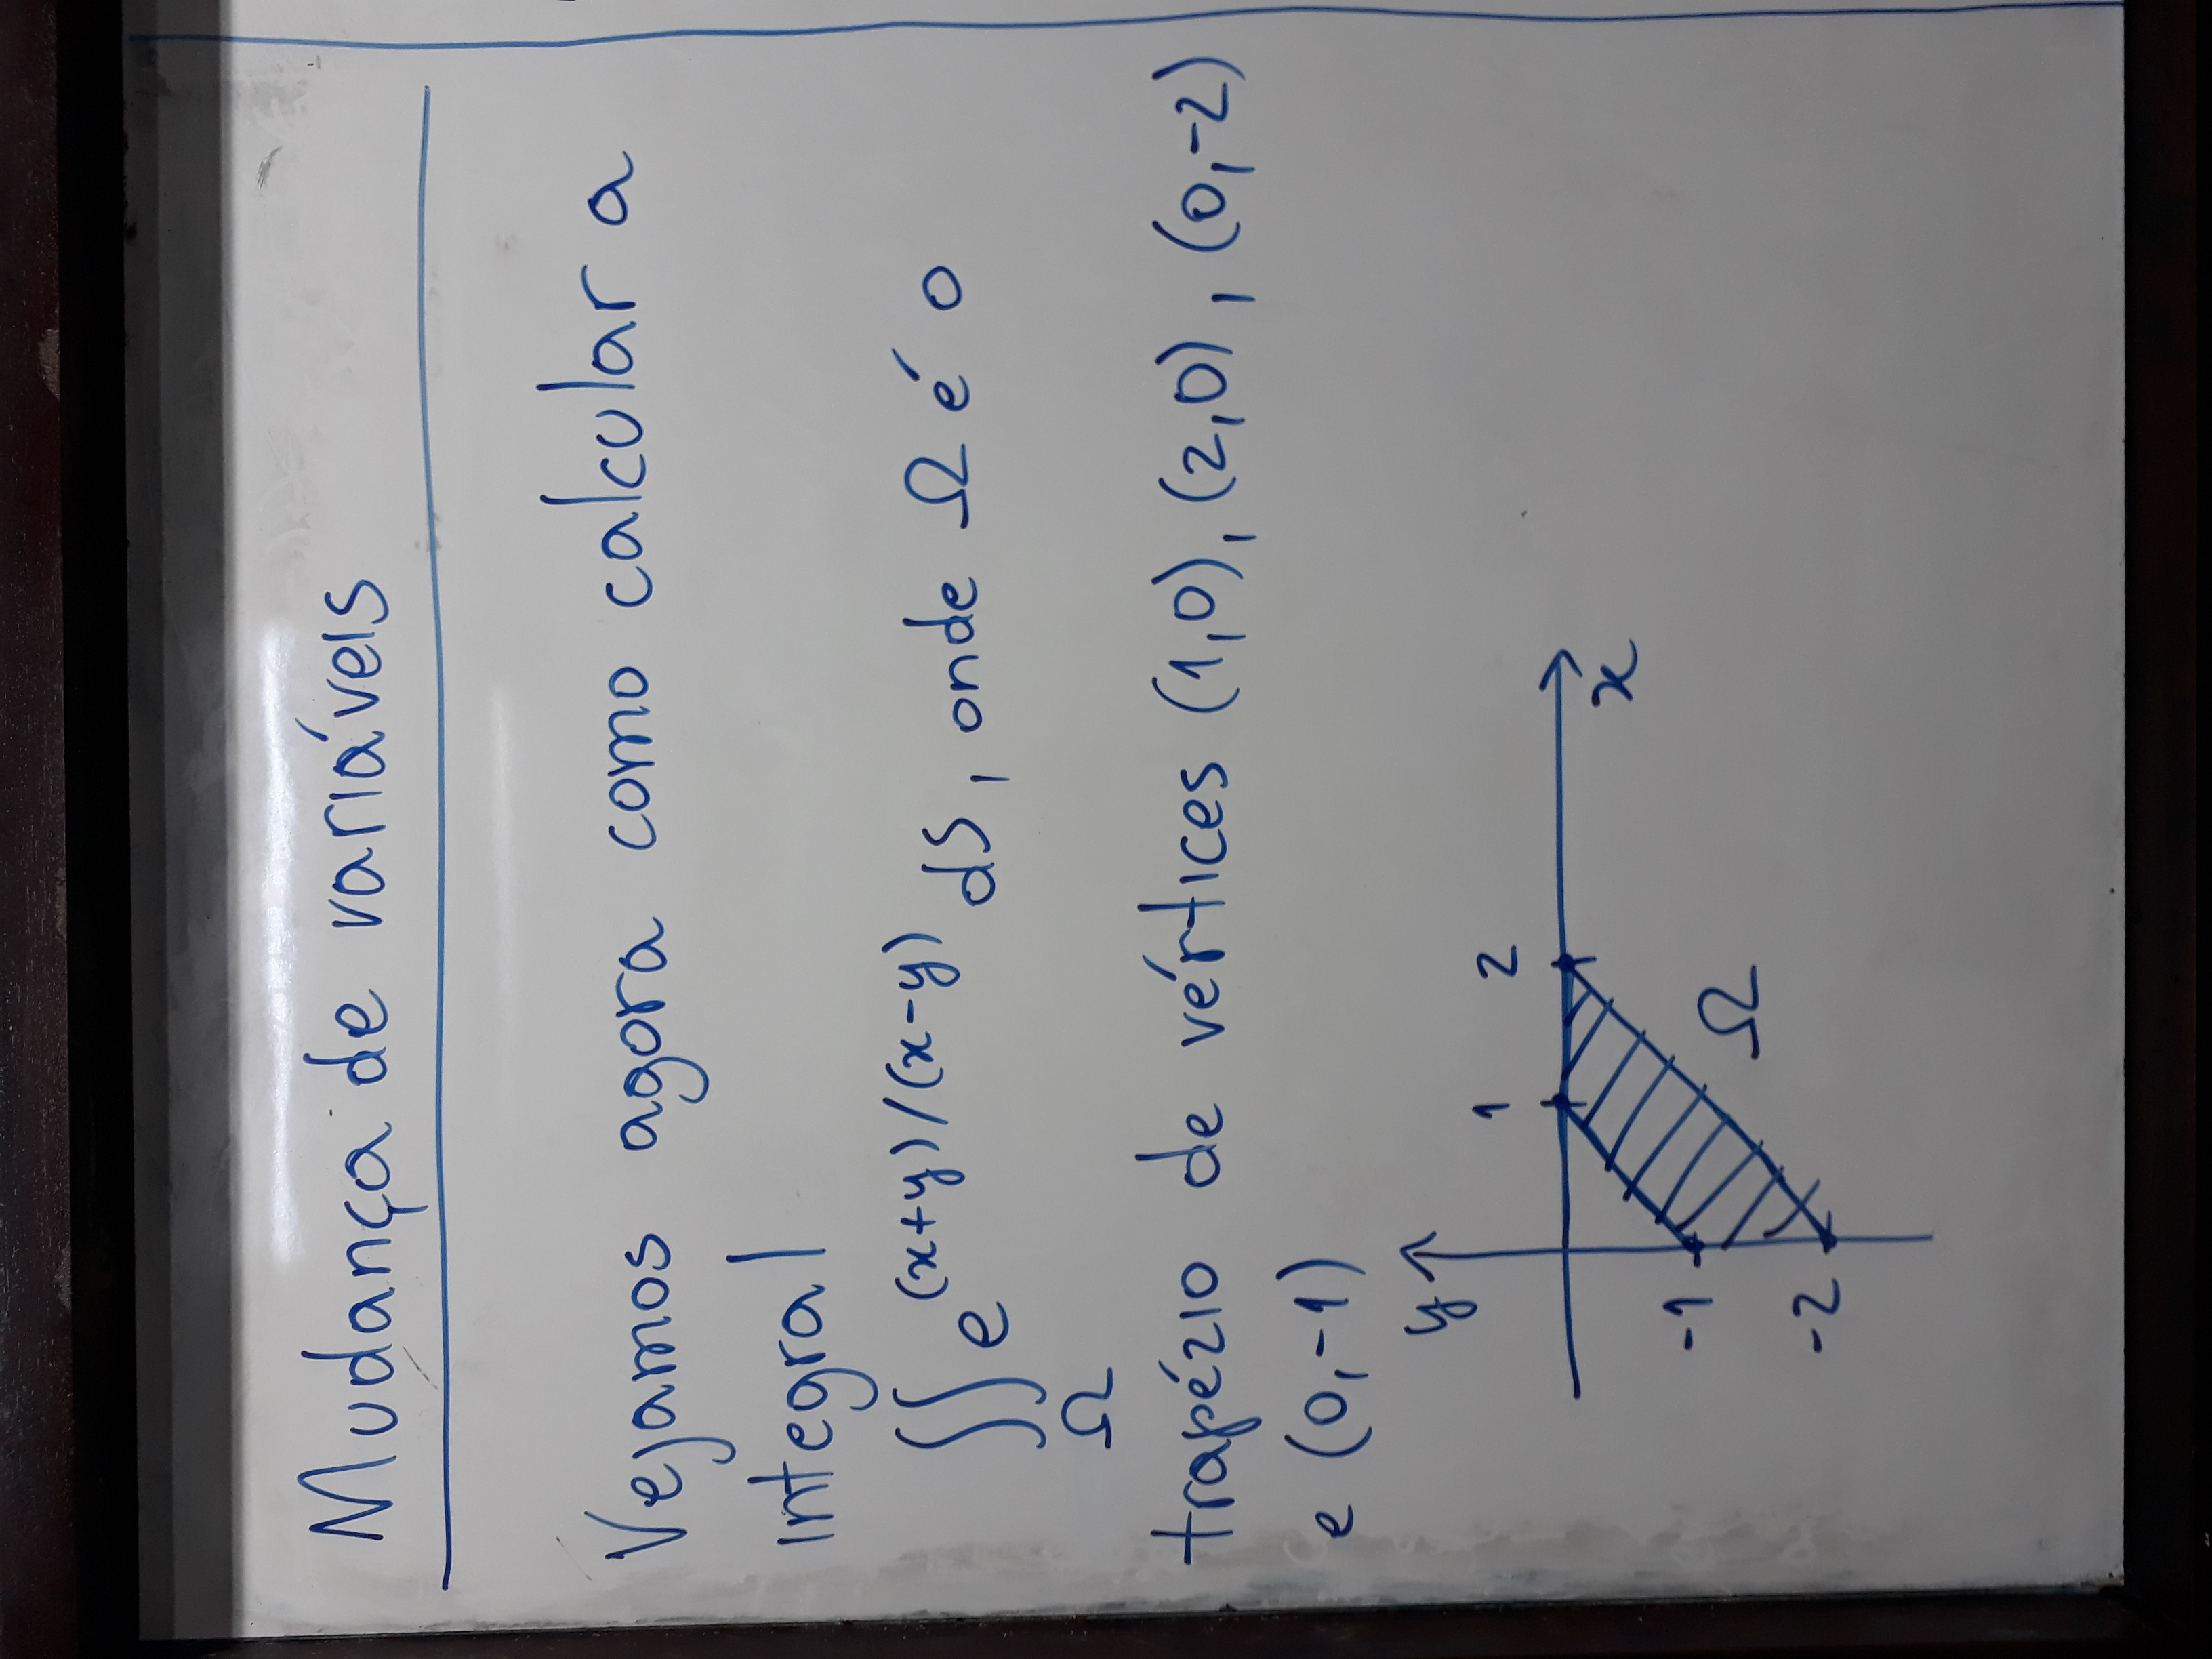 Mudança de variáveis
Vejamos agora como calcular a
integral
∬ e^(x+y)/(x-y) dS, onde Ω é o
Ω
trapézio de vértices (1,0), (2,0), (0,-2)
e (0,-1)
y
1 2
x
-1
Ω
-2